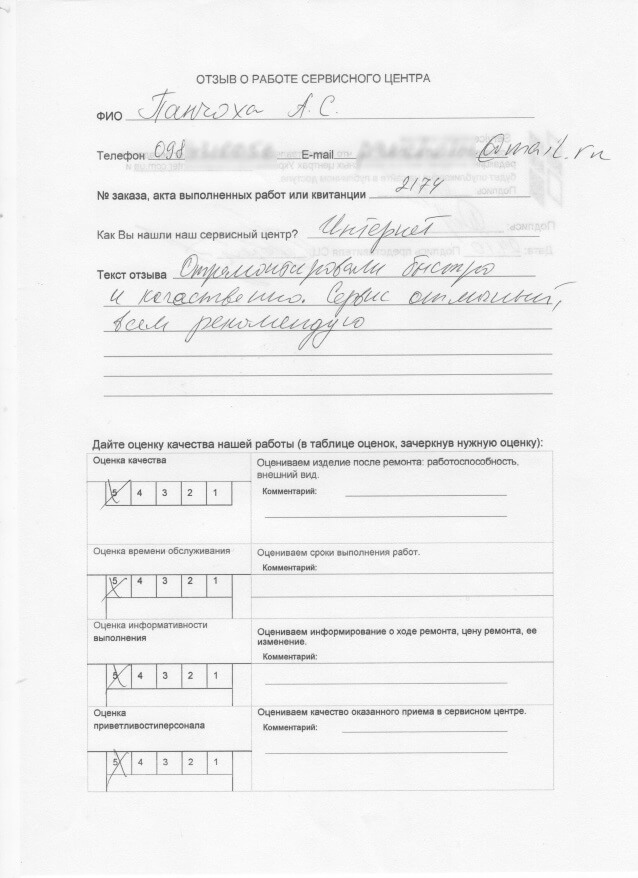 ОТЗЫВ О РАБОТЕ СЕРВИСНОГО ЦЕНТРА
ФИО Панчоха А.С.
Телефон 098 E-mail @mail.ru
№ заказа, акта выполненных работ или квитанции 2174
Как Вы нашли наш сервисный центр? Интернет
Текст отзыва Отремонтировали быстро
и качественно. Сервис отличный,
всем рекомендую
Дайте оценку качества нашей работы (в таблице оценок, зачеркнув нужную оценку):
Оценка качества
5 4 3 2 1
Оцениваем изделие после ремонта: работоспособность,
внешний вид.
Комментарий:
Оценка времени обслуживания
5 4 3 2 1
Оцениваем сроки выполнения работ.
Комментарий:
Оценка информативности
выполнения
5 4 3 2 1
Оцениваем информирование о ходе ремонта, цену ремонта, ее
изменение.
Комментарий:
Оценка
приветливостиперсонала
5 4 3 2 1
Оцениваем качество оказанного приема в сервисном центре.
Комментарий: